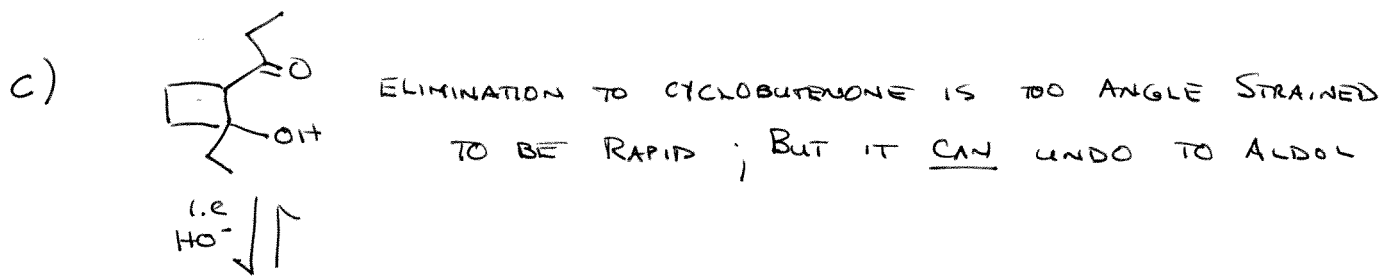 C)
O
ELIMINATION TO CYCLOBUTENONE IS TOO ANGLE STRAINED
OH
TO BE RAPID ; BUT IT CAN UNDO TO ALDOL
i.e
HO-